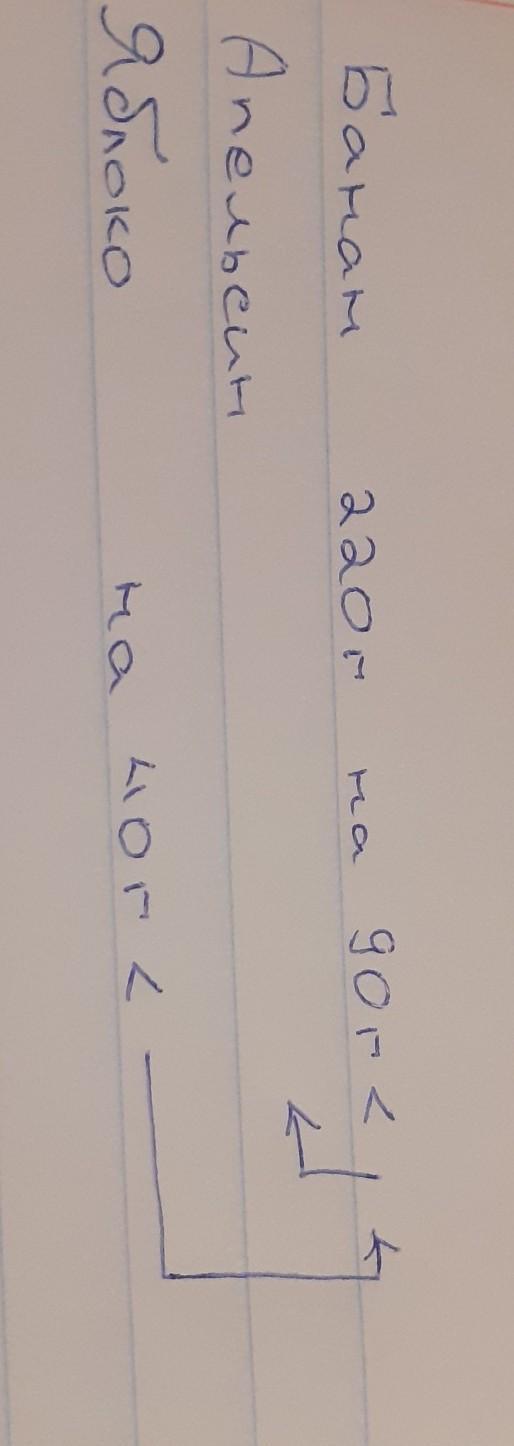 Банан 220г на 90г <
Апельсин
Яблоко на 40г <